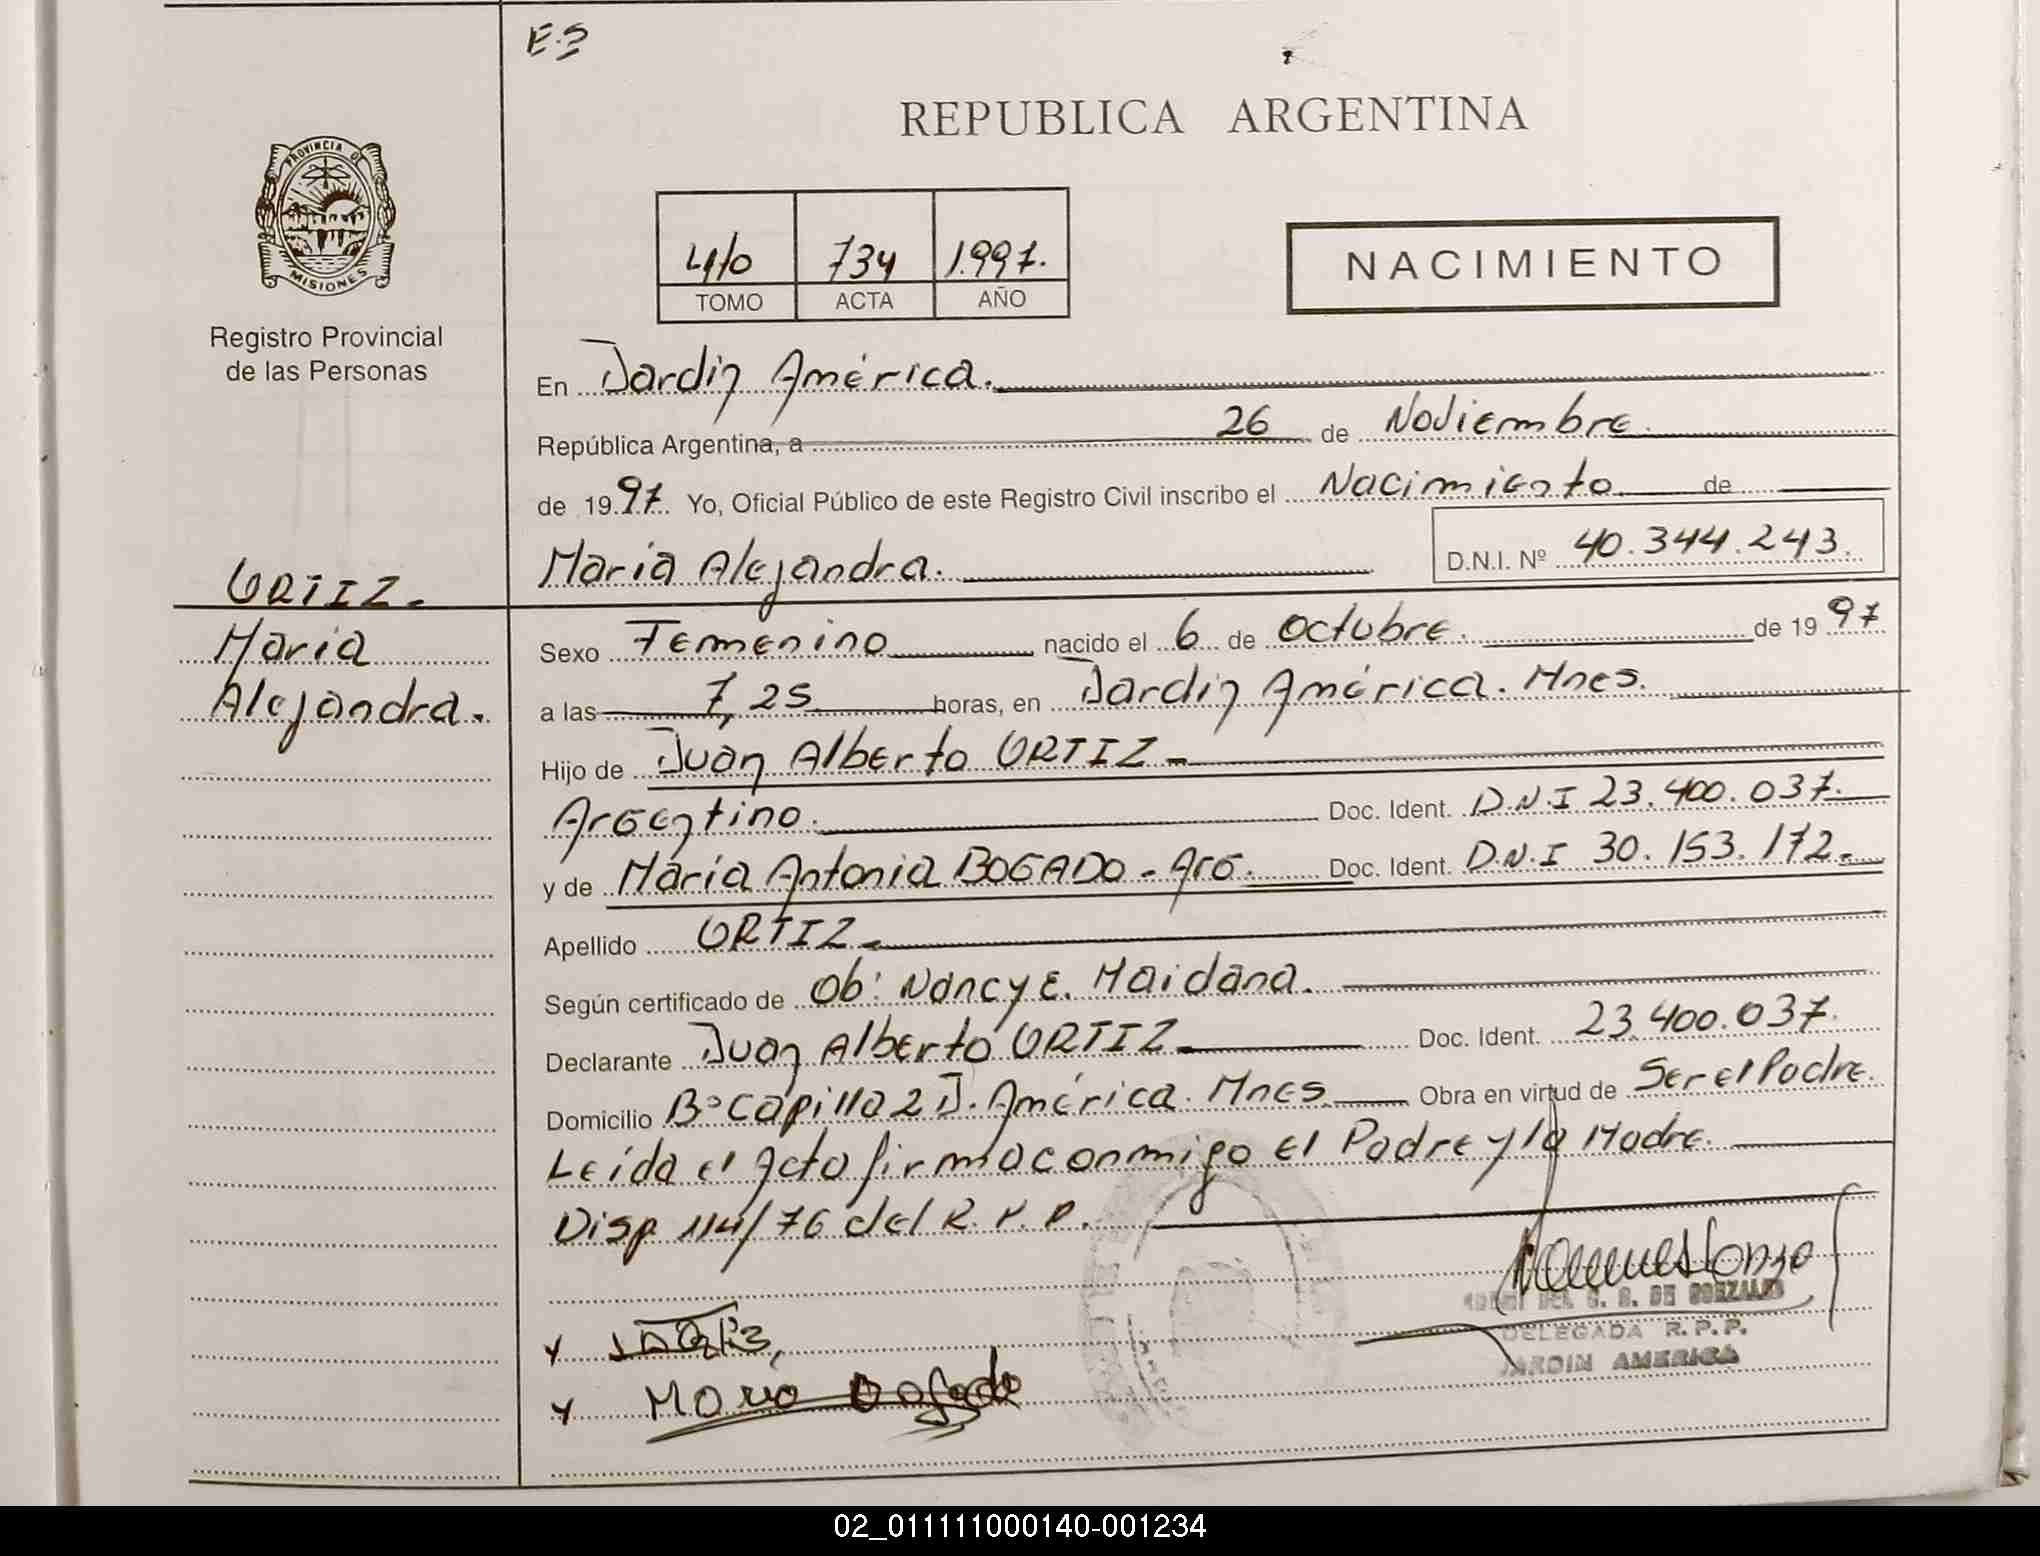 E.S
REPUBLICA ARGENTINA
PROVINCIA DE
MISIONES
Registro Provincial
de las Personas
4to 734 1.997.
TOMO ACTA AÑO
NACIMIENTO
En Jardin América.
República Argentina, a 26 de Noviembre.
de 1997. Yo, Oficial Público de este Registro Civil inscribo el Nacimiento de
Maria Alejandra. D.N.I. Nº 40.344.243.
ORTIZ.
Maria
Alejandra.
Sexo Femenino nacido el 6 de Octubre. de 1997
a las 7,25 horas, en Jardin América. Mnes.
Hijo de Juan Alberto ORTIZ -
Argentino. Doc. Ident. D.N.I 23.400.037.
y de Maria Antonia BOGADO - Arg. Doc. Ident. D.N.I 30.153.172.
Apellido ORTIZ
Según certificado de Ob: Nancy E. Maidana.
Declarante Juan Alberto ORTIZ Doc. Ident. 23.400.037.
Domicilio Bº Capilla 2 J. América. Mnes. Obra en virtud de Ser el Padre.
Leída el Acta firma conmigo el Padre y la Madre.
Disp 114/76 del R.P.P.
DEL C. B. DE GONZALEZ
DELEGADA R.P.P.
JARDIN AMERICA
Maria Bogado
02_011111000140-001234